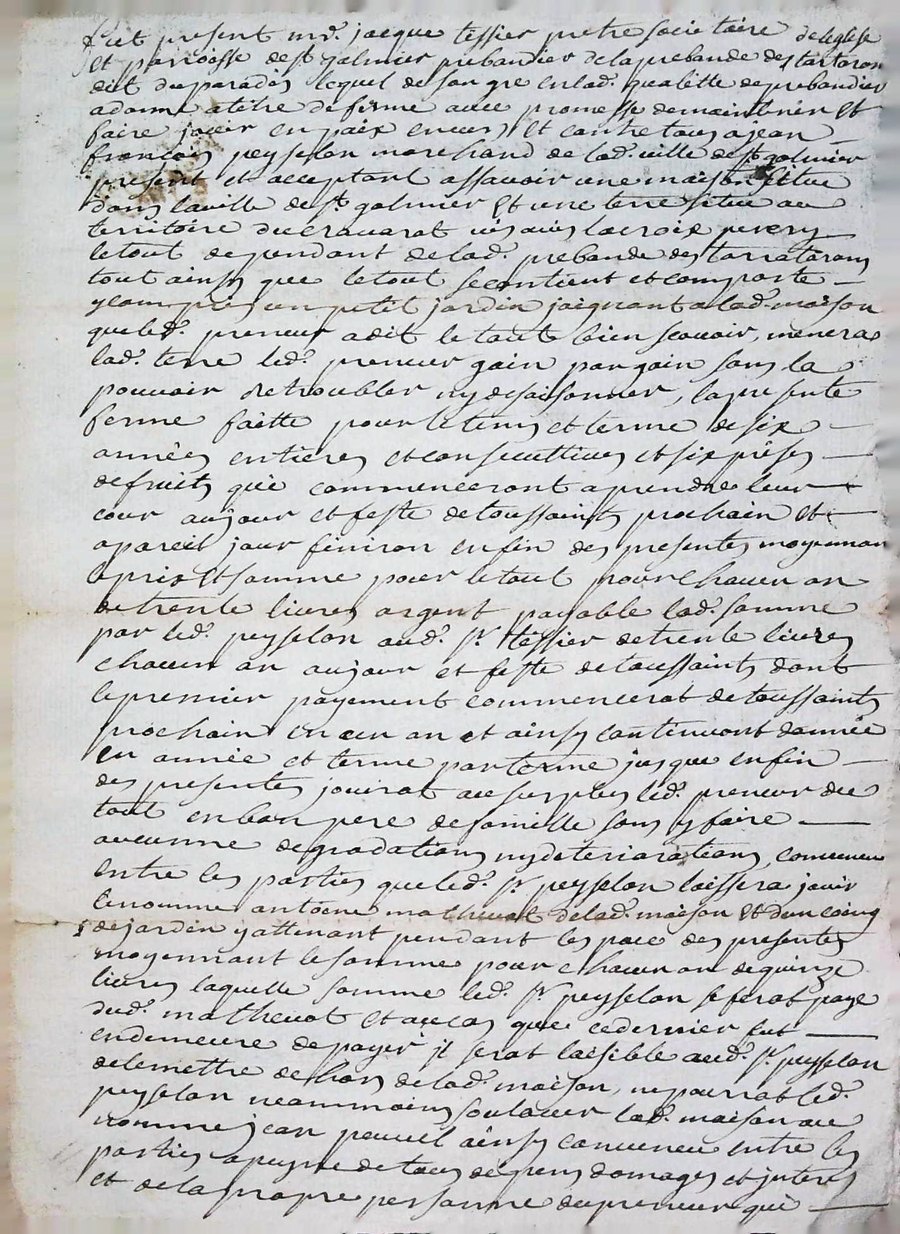 fut present mre. jacque tessier pretre societaire de leglise
et paroisse de st galmier prebandier de la prebande des tartaron
dit du paradis lequel de son gre en lad. qualitte de prebandier
a donné a titre de ferme avec promesse de maintenir et
faire jouir en paix envers et contre tous a jean
francois peysselon marchand de lad. ville de st galmier
present et acceptant assavoir une maison situe
dans la ville de st galmier et une terre situe au
territoire du cravarat vis avis lacroix
le tout dependant de lad. prebande des tarrataron
tout ainsy que le tout se contient et comporte
y compris un petit jardin joignant a lad. maison
que led. preneur a dit le tout bien scavoir, menera
lad. terre led. preneur gain par gain sans la
pouvoir detroubler ny desaisonner, la presente
ferme faitte pour le tems et terme de six
années entieres et consecuttives et six prises
de fruits qui commenceront a prendre leur
cour au jour et feste de toussaints prochain et
a pareil jour finiron en fin des presentes moyennan
le prix et somme pour le tout pour chacun an
de trente livres argent payable lad. somme
par led. peysselon aud. sr. tessier de trente livres
chacun an au jour et feste de toussaints dont
le premier payement commencerat de toussaints
prochain en un an et ainsy continuont dannée
en année et terme par terme jusque en fin
des presentes jouirat au surplus led. preneur du
tout en bon pere de famille sans y faire
aucunne degradations ny deteriorations, convenu
entre les parties que led. sr. peysselon laissera jouir
le nomme antoine mathevot de lad. maison et dun coing
de jardin y attenant pendant lespace des presentes
moyennant le somme pour chacun an de quinze
livres laquelle somme led. sr. peysselon se ferat paye
dud. mathevot et au cas que ce dernier fut
en demeure de payer il serat laisible aud. sr. peysselon
de le mettre dehors de lad. maison, ne pourrat led.
peysselon neammoins soulouer lad. maison au
nomme jean ainsy convenu entre les
parties a peyne de tous depens domages et interes
et de la propre personne du preneur qui